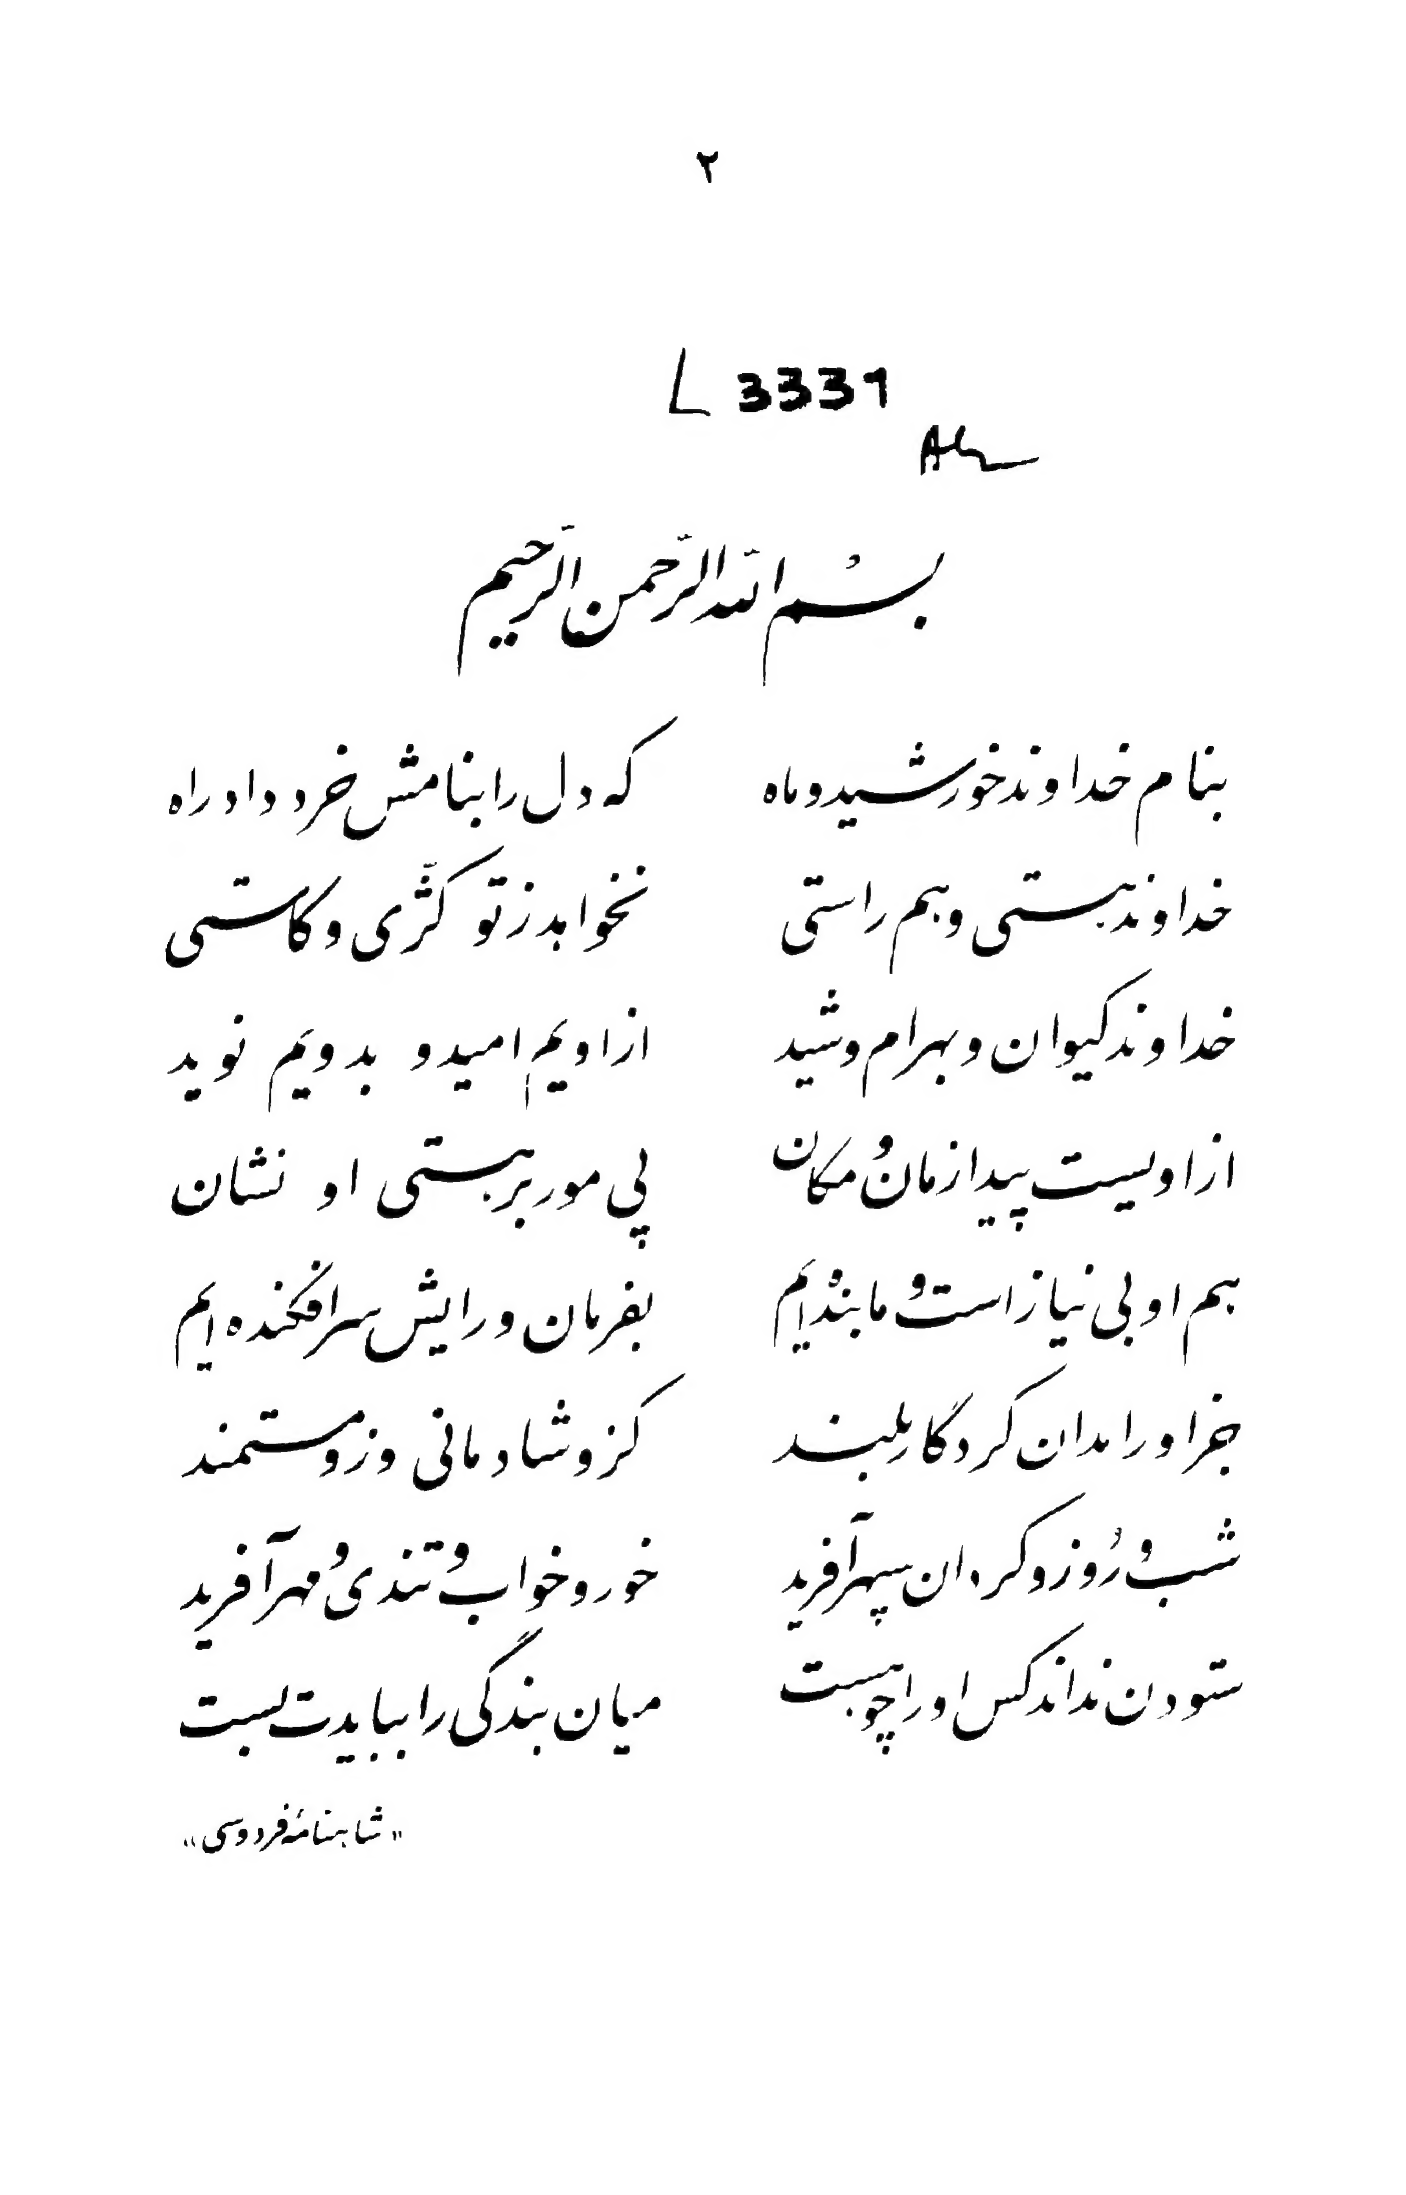 ۲
L 3331
بسم الله الرّحمن الرّحیم
بنام خداوند خورشید و ماه که دل را بنامش خرد داد راه
خداوند هستی و هم راستی نخواهد ز تو کژّی و کاستی
خداوند کیوان و بهرام و شید ازاویم امید و بدویم نوید
ازاویست پیدا زمان و مکان پی مور بر هستی او نشان
هم او بی نیاز است و ما بنده ایم بفرمان و رایش سرافکنده ایم
جز او را مدان کردگار بلند کزو شادمانی وزو مستمند
شب و رُوز و گردان سپهر آفرید خور و خواب و تندی و مهر آفرید
ستودن نداند کس او را چو هست میان بندگی را ببایدت بست
«شاهنامهٔ فردوسی»